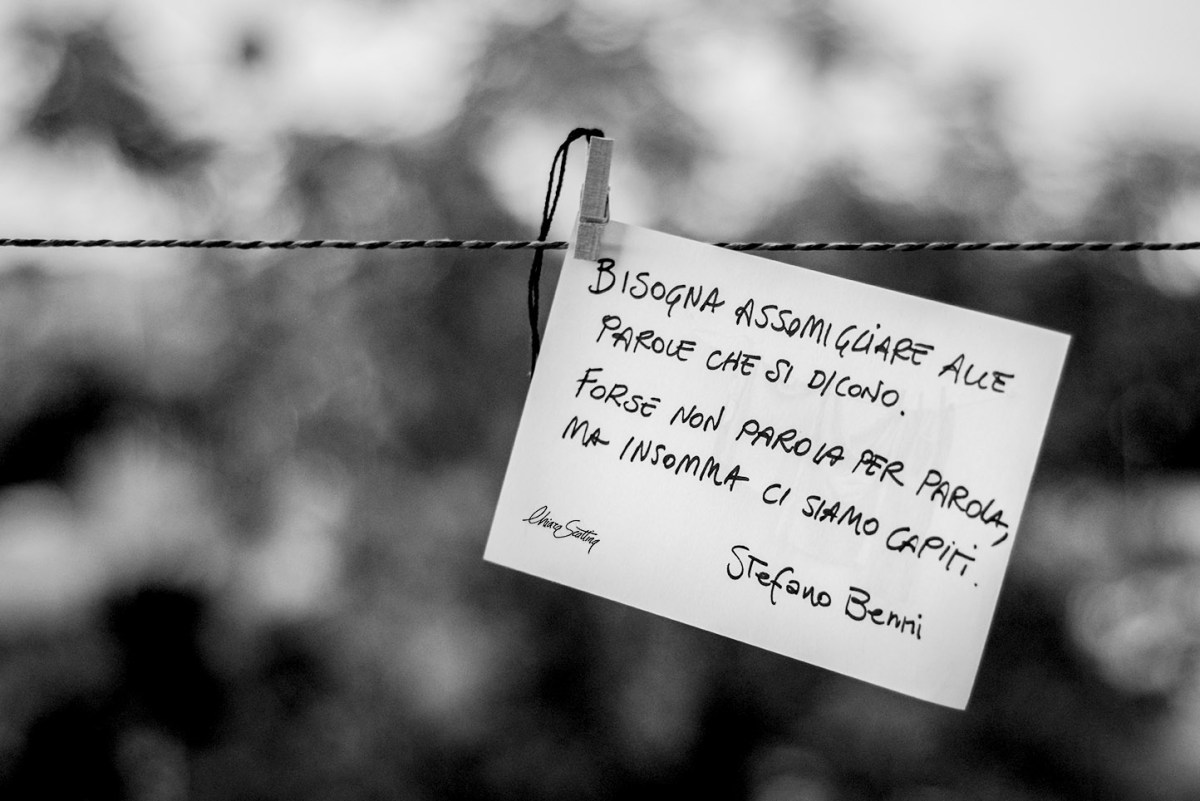 BISOGNA ASSOMIGLIARE ALLE
PAROLE CHE SI DICONO.
FORSE NON PAROLA PER PAROLA,
MA INSOMMA CI SIAMO CAPITI.
Stefano Benni
Chiara